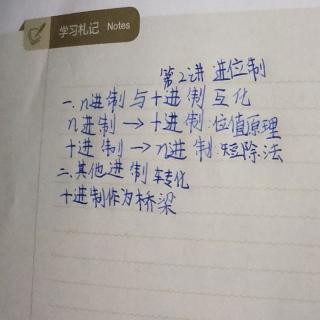 学习札记 Notes
第2讲 进位制
一.n进制与十进制互化
n进制→十进制:位值原理
十进制→n进制:短除法
二.其他进制转化
十进制作为桥梁